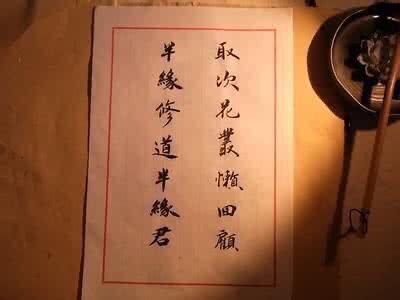 取次花叢懶回顧
半緣修道半緣君